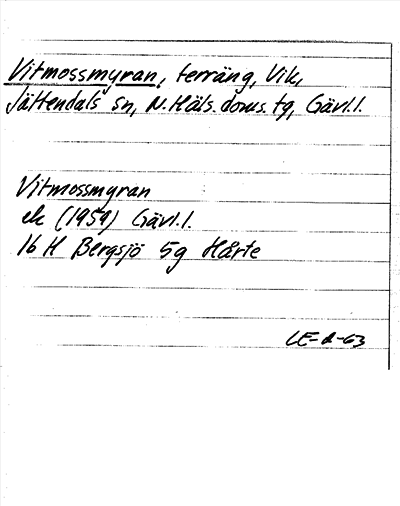 Vitmossmyran, terräng, Vik,
Jättendals sn, N. Häls. doms. tg, Gävl. l.
Vitmossmyran
ek (1959) Gävl. l.
16 H Bergsjö 5g Hårte